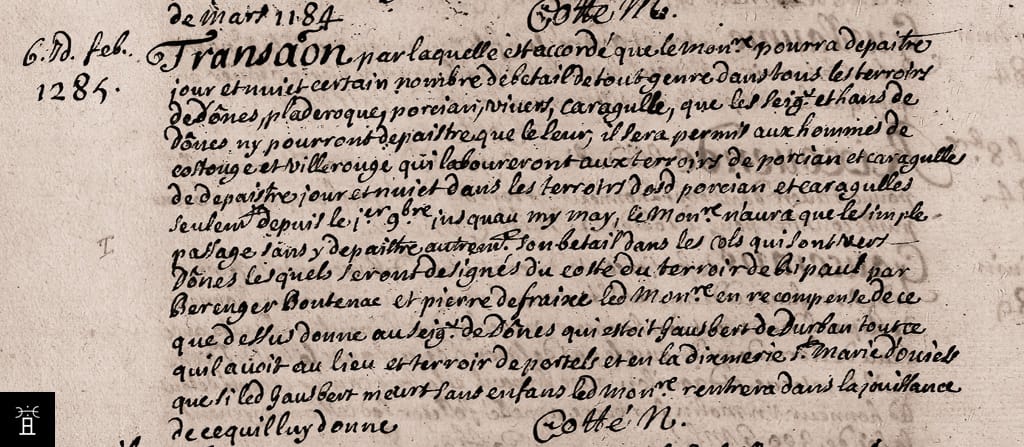 de mars 1184 Cotté M.
6. Id. feb. Transaõn par laquelle est accordé que le mon.re pourra depaitre
1285. jour et nuict certain nombre de betail de tout genre dans tous les terroirs
de dônes, pladeroque, porcian, vivers, caragulle, que les seig.r et hans de
Dônes ny pourront depaistre que le leur, il sera permis aux hommes de
costouge et villerouge qui laboureront aux terroirs de porcian et caragulles
de depaistre jour et nuict dans les terroirs dosd porcian et caragulles
seulem.t depuis le j.er 9.bre jusquau my may, le Mon.re n'aura que le simple
passage sans y depaistre autrem.t son betail dans les cols qui sont vers
Dônes lesquels seront designés du costé du terroir de bipaul par
Berenger Boutenac et pierre de fraixe led Mon.re en recompense de ce
que dessus donne au seig.r de Dônes qui estoit Gausbert de Durban tout ce
quil avoit au lieu et terroir de portels et en la dixmerie s.te Marie d'ouiels
que si led Gausbert meurt sans enfans led mon.re rentrera dans la jouissance
de ce quil luy donne Cotté N.